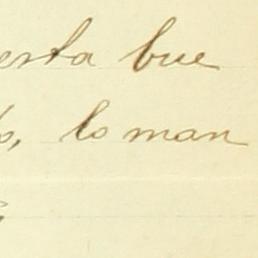 esta bue
lo man